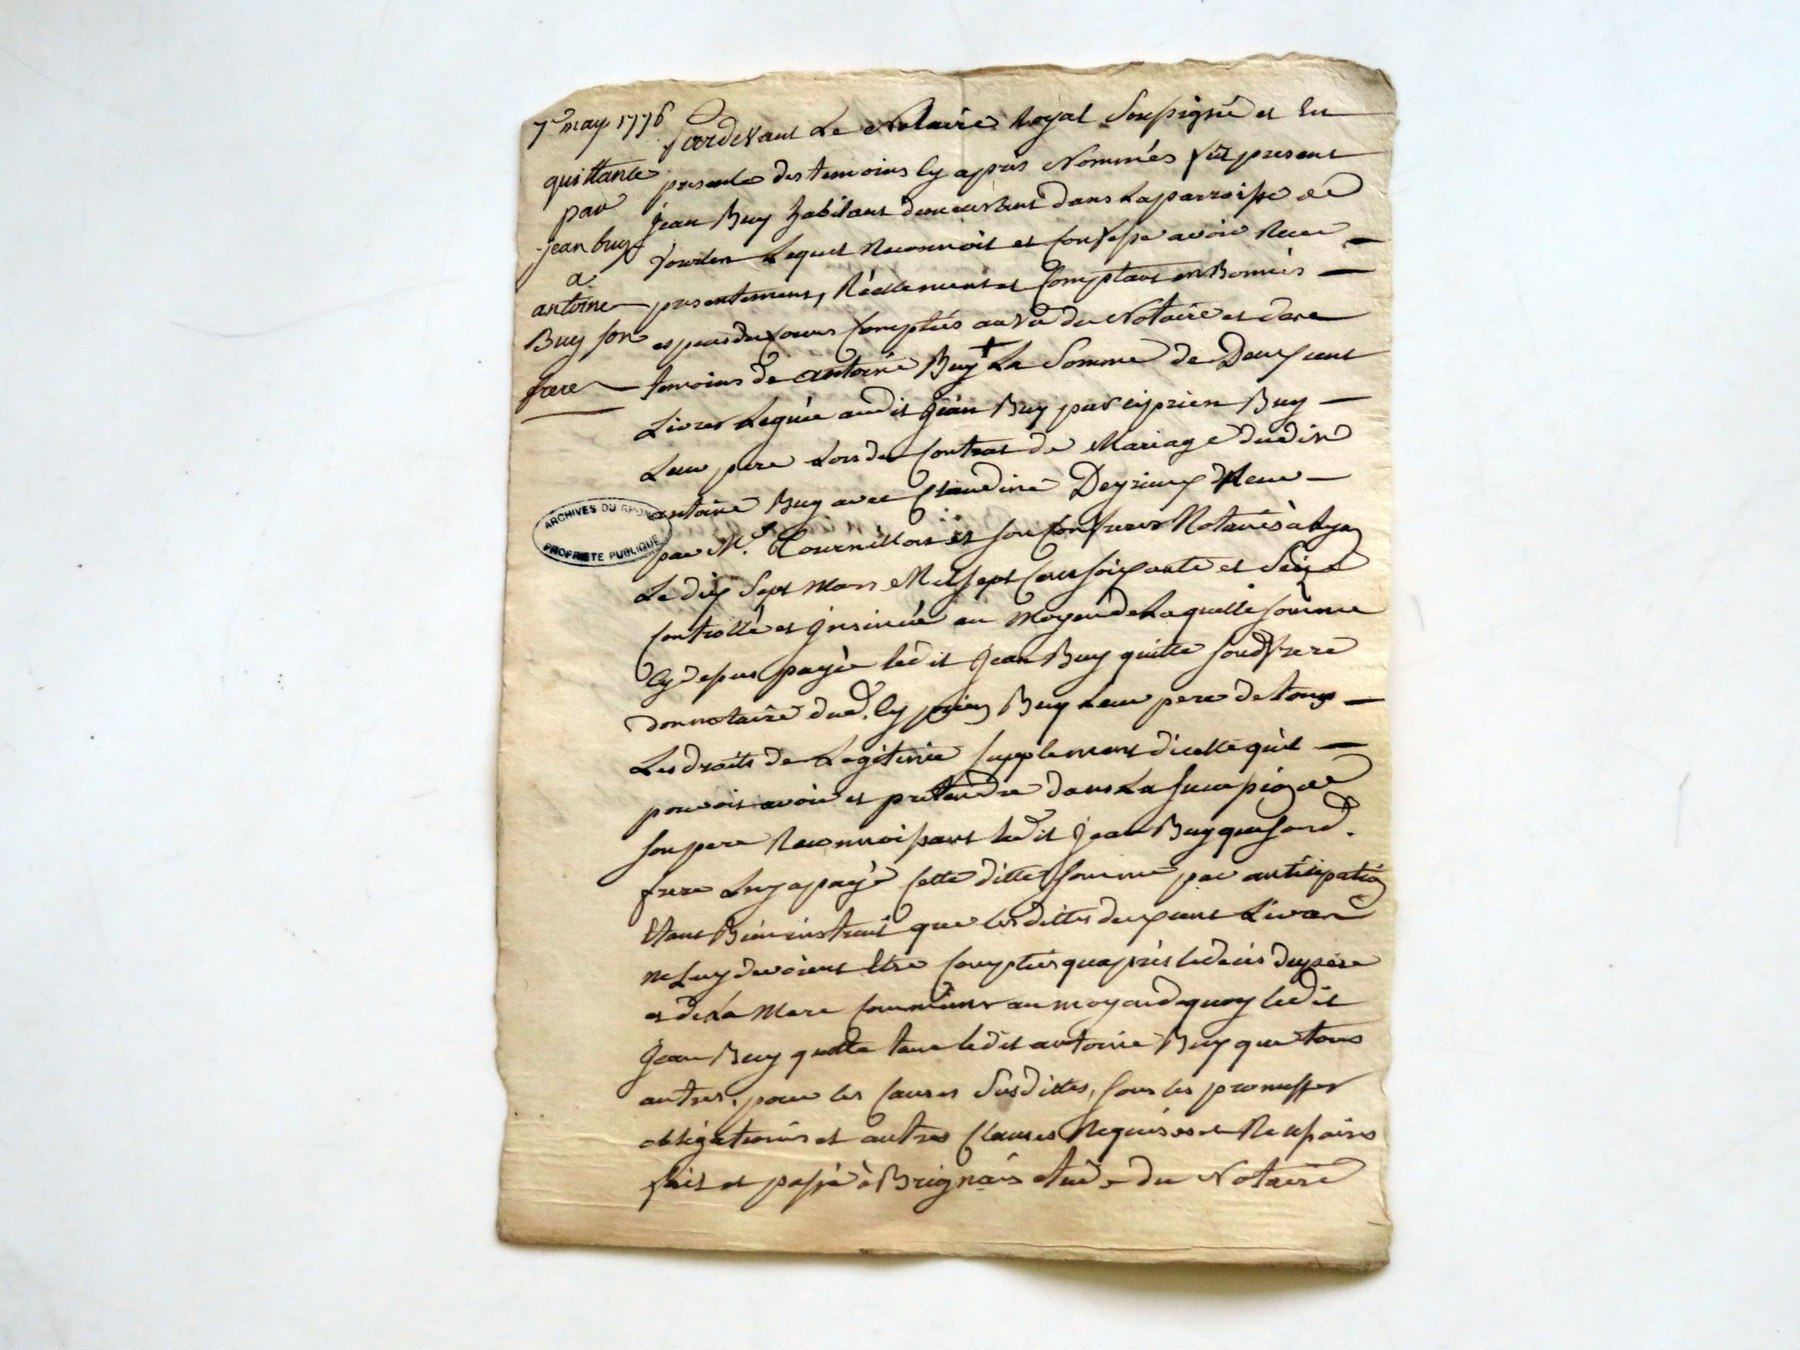 7e may 1776
quittance
par
jean buy
a
antoine
Buy son
frere
Pardevant Le Notaire Royal Soussigné et En
presence des temoins Cy apres Nommés fut present
Jean Buy habitant demeurant dans La parroisse de
Lequel Reconnoit et Confesse avoir Receu
presentement, Réellement et Comptant en Bonnes
especes du Cours Comptés au vu du Notaire et des
temoins de antoine Buy + La Somme de Deux cent
Livres Leguée audit Jean Buy par ciprien Buy
Leur pere Lors du Contrat de Mariage dudit
antoine Buy avec Claudine Deyrieux Receu
par Me. Tournilhon et son Confrere Notaires à Lyon
Le dix Sept Mars Mil sept Cent soixante et Seize
Controllé et Jnsinué au Moyen de Laquelle somme
Cy desus payée ledit Jean Buy quitte soud frere
donnataire dud. Cyprien Buy Leur pere de tous
Les droits de Legitime supplement d'icelle qu'il
pouvoit avoir et pretendre dans La succession de
son pere Reconnoissant ledit Jean Buy que soud.
frere Luy a payé Cette ditte somme par anticipation
Etant Bien instruit que lesdittes deux cent Livres
ne Luy devoient Etre Comptés qu'après le decès du pere
et de La Mere Communs au moyen de quoy ledit
Jean Buy quitte tant ledit antoine Buy que tous
autres, pour les Causes Susdittes, sous les promesses
obligations et autres Clauses Requises et Necessaires
fait et passé à Brignais etude du Notaire
ARCHIVES DU RHONE
PROPRIETE PUBLIQUE